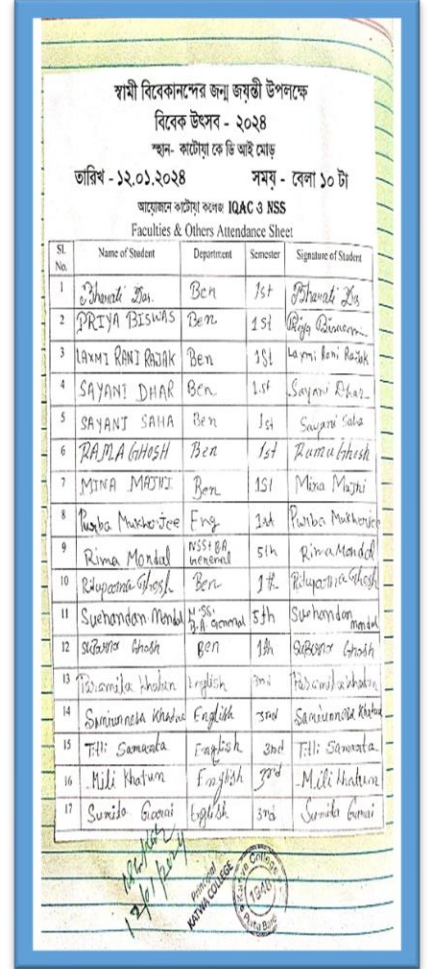 স্বামী বিবেকানন্দের জন্ম জয়ন্তী উপলক্ষে
বিবেক উৎসব - ২০২৪
স্থান- কাটোয়া কে ডি আই মোড়
তারিখ - ১২.০১.২০২৪ সময় - বেলা ১০ টা
আয়োজনে কাটোয়া কলেজ IQAC ও NSS
Faculties & Others Attendance Sheet
Sl. No. Name of Student Department Semester Signature of Student
1 Bharati Das Ben 1st Bharati Das
2 PRIYA BISWAS Ben 1st Priya Biswas
3 LAXMI RANI RAJAK Ben 1st Laxmi Rani Rajak
4 SAYANI DHAR Ben 1st Sayani Dhar
5 SAYANI SAHA Ben 1st Sayani Saha
6 RAMA GHOSH Ben 1st Rama Ghosh
7 MINA MAJHI Ben 1st Mina Majhi
8 Purba Mukherjee Eng Purba Mukherjee
9 Rima Mondal NSS+BA General 5th Rima Mondal
10 Rituparna Ghosh Ben 1th Rituparna Ghosh
11 Suchandan Mondal N.SS. B.A General 5th Suchandan Mondal
12 Ghosh Ben 1th Ghosh
13 Khatun English 3nd
14 English 3nd
15 Titli Samanta English 3nd Titli Samanta
16 Mili Khatun English 3rd Mili Khatun
17 Sumita Gorai English 3nd Sumita Gorai
12/01/2024
Principal
KATWA COLLEGE
Katwa College
1948